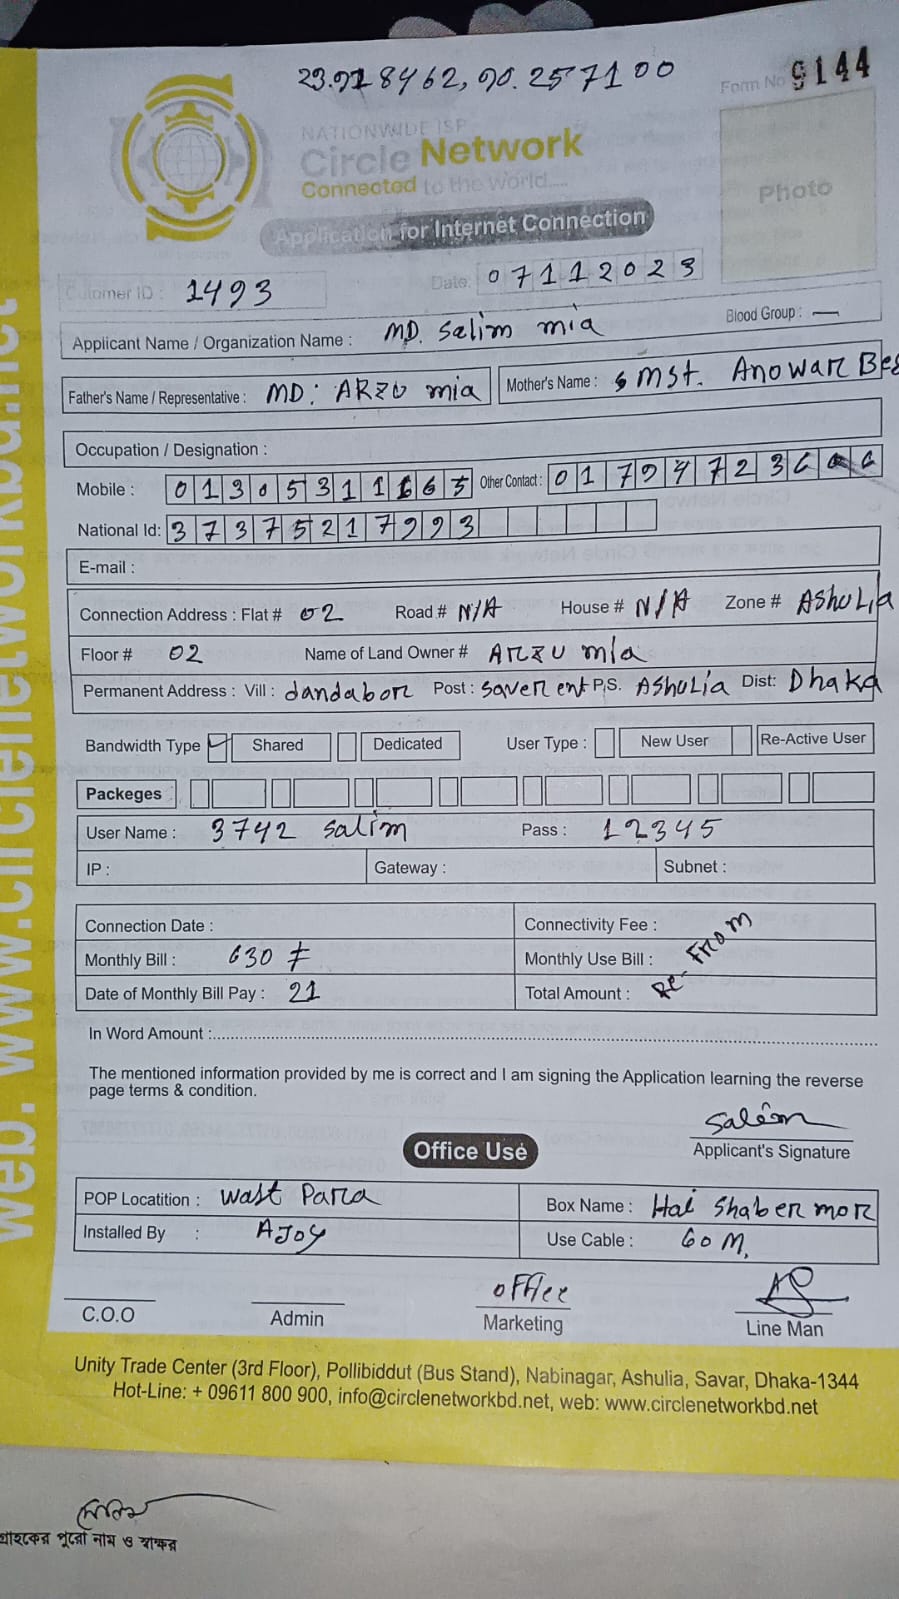 23.918462, 90.257100
Form No 9144
NATIONWIDE ISP
Circle Network
Connected to the World....
Photo
Application for Internet Connection
Cutomer ID : 1493 Date: 07112023
Applicant Name / Organization Name : MD. Salim mia Blood Group : —
Father's Name / Representative : MD: ARZU mia Mother's Name : MST. Anowar Be
Occupation / Designation :
Mobile : Other Contact :
National Id: 37375217993
E-mail :
Connection Address : Flat # 02 Road # N/A House # N/A Zone # AShuLia
Floor # 02 Name of Land Owner # ARZU mia
Permanent Address : Vill : dandabor Post : saver ent P,S. AShuLia Dist: Dhaka
Bandwidth Type Shared Dedicated User Type : New User Re-Active User
Packeges
User Name : 3742 salim Pass : 12345
IP : Gateway : Subnet :
Connection Date : Connectivity Fee :
Monthly Bill : 630 Monthly Use Bill :
Date of Monthly Bill Pay : 21 Total Amount : Re-From
In Word Amount :
The mentioned information provided by me is correct and I am signing the Application learning the reverse
page terms & condition.
Salim
Applicant's Signature
Office Use
POP Locatition : wast Para Box Name : Hai Shaber mor
Installed By : AJoy Use Cable : 60 M.
office
C.O.O Admin Marketing Line Man
Unity Trade Center (3rd Floor), Pollibiddut (Bus Stand), Nabinagar, Ashulia, Savar, Dhaka-1344
Hot-Line: + 09611 800 900, info@circlenetworkbd.net, web: www.circlenetworkbd.net
web. www.circlenetworkbd.net
গ্রাহকের পুরো নাম ও স্বাক্ষর